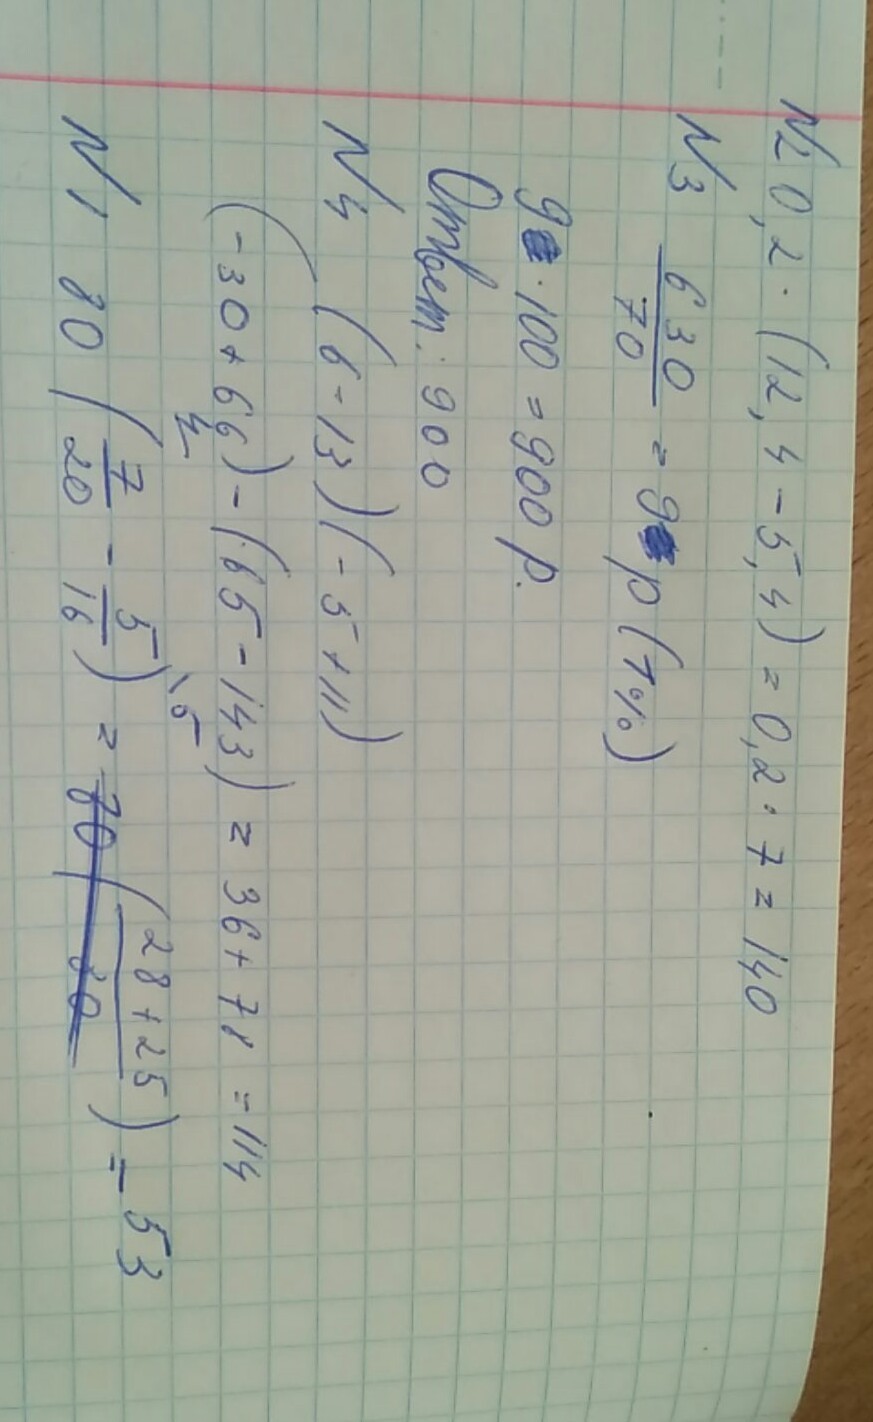 №2 0,2 · (12,4 - 5,4) = 0,2 · 7 = 140
№3 630/70 = 9 р (1%)
9 · 100 = 900 р.
Ответ: 900
№4 (6 - 13)(-5 + 11)
(-30 + 66) - (65 - 143) = 36 + 78 = 114
№1 80 (7/20 \4 - 5/16 \5) = 80 (28 + 25 / 80) = 53